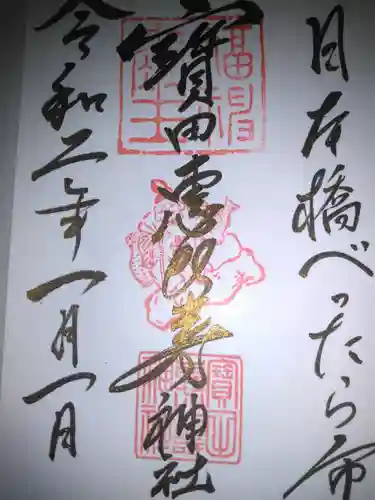 日本橋べったら市
寳田恵比寿神社
令和二年一月一日